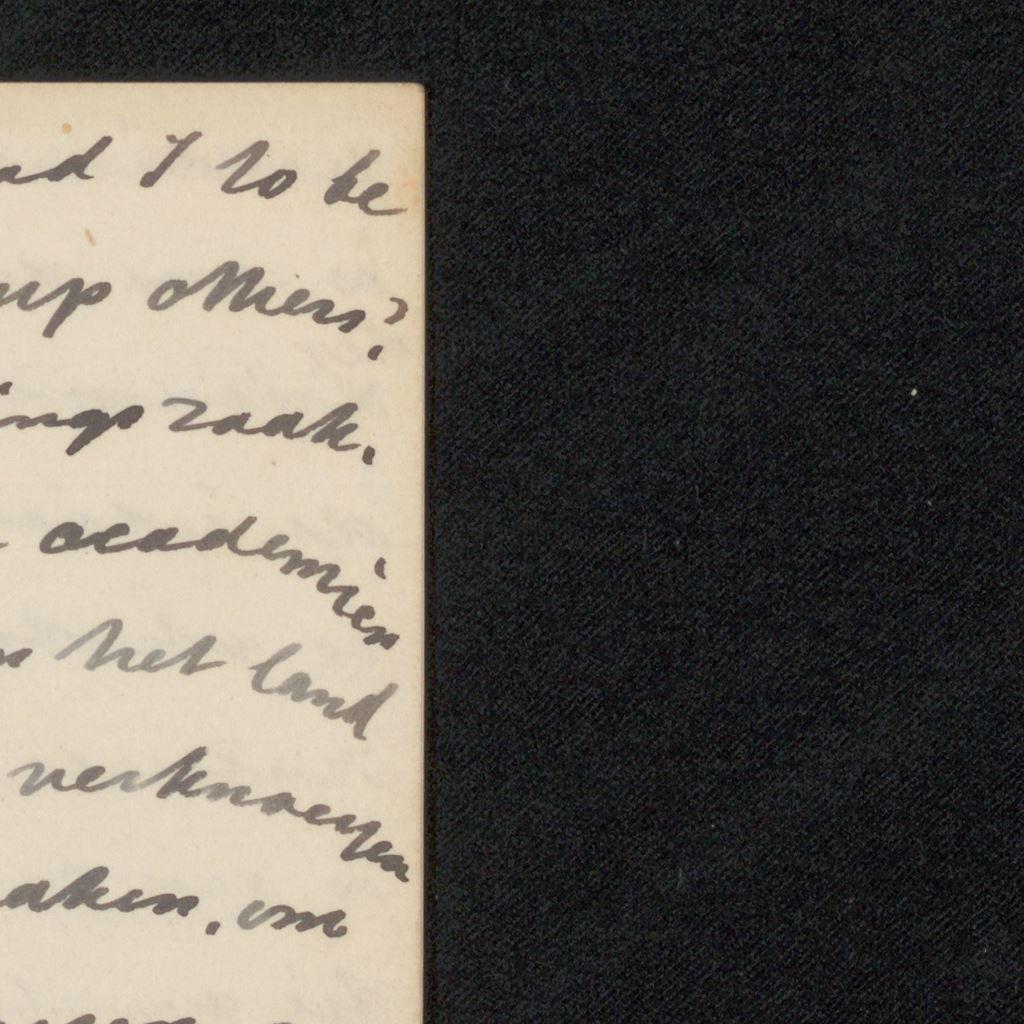 I to be
up others?
ings raak.
academien
het land
verknoeyen
aken, om